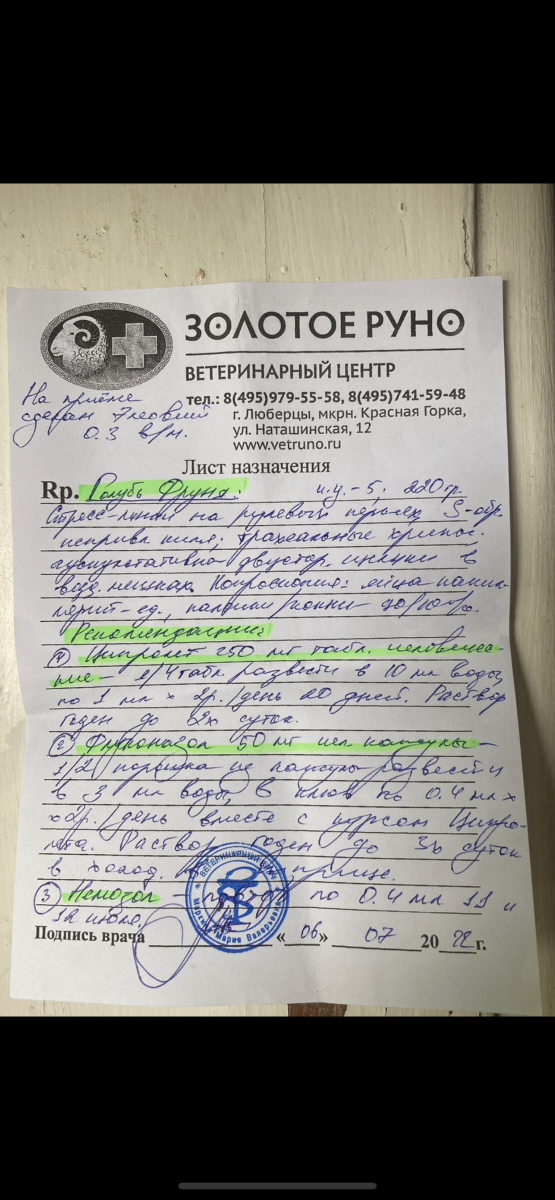 ЗОЛОТОЕ РУНО
ВЕТЕРИНАРНЫЙ ЦЕНТР
тел.: 8(495)979-55-58, 8(495)741-59-48
г. Люберцы, мкрн. Красная Горка,
ул. Наташинская, 12
www.vetruno.ru
На приёме
сделан
0.3 в/м.
Лист назначения
Rp. Голубь Фруня: 5, 220 гр.
Стресс-линии на рулевых перьях, S-обр.
искривл. киля; трахеальные хрипы.
аускультативно двустор. в
возд. мешках. Копроскопия: яйца капил-
до 10
Рекомендации:
① Ципролет 250 мг табл. человечес-
кие - 1/4 табл. развести в 10 мл воды,
по 1 мл х 2р./день 20 дней. Раствор
годен до 2х суток.
② Флуконазол 50 мг чел. капсулы -
1/2 порошка из капсулы развести
в 3 мл воды, в клюв по 0.4 мл х
х2р./день вместе с курсом Ципро-
лета. Раствор годен до 3х суток
в холод.
③ Немозол - по 0.4 мл 11 и
12 июля.
Подпись врача «06» 07 2022г.
ВЕТЕРИНАРНЫЙ ВРАЧ
Мария Валерьевна